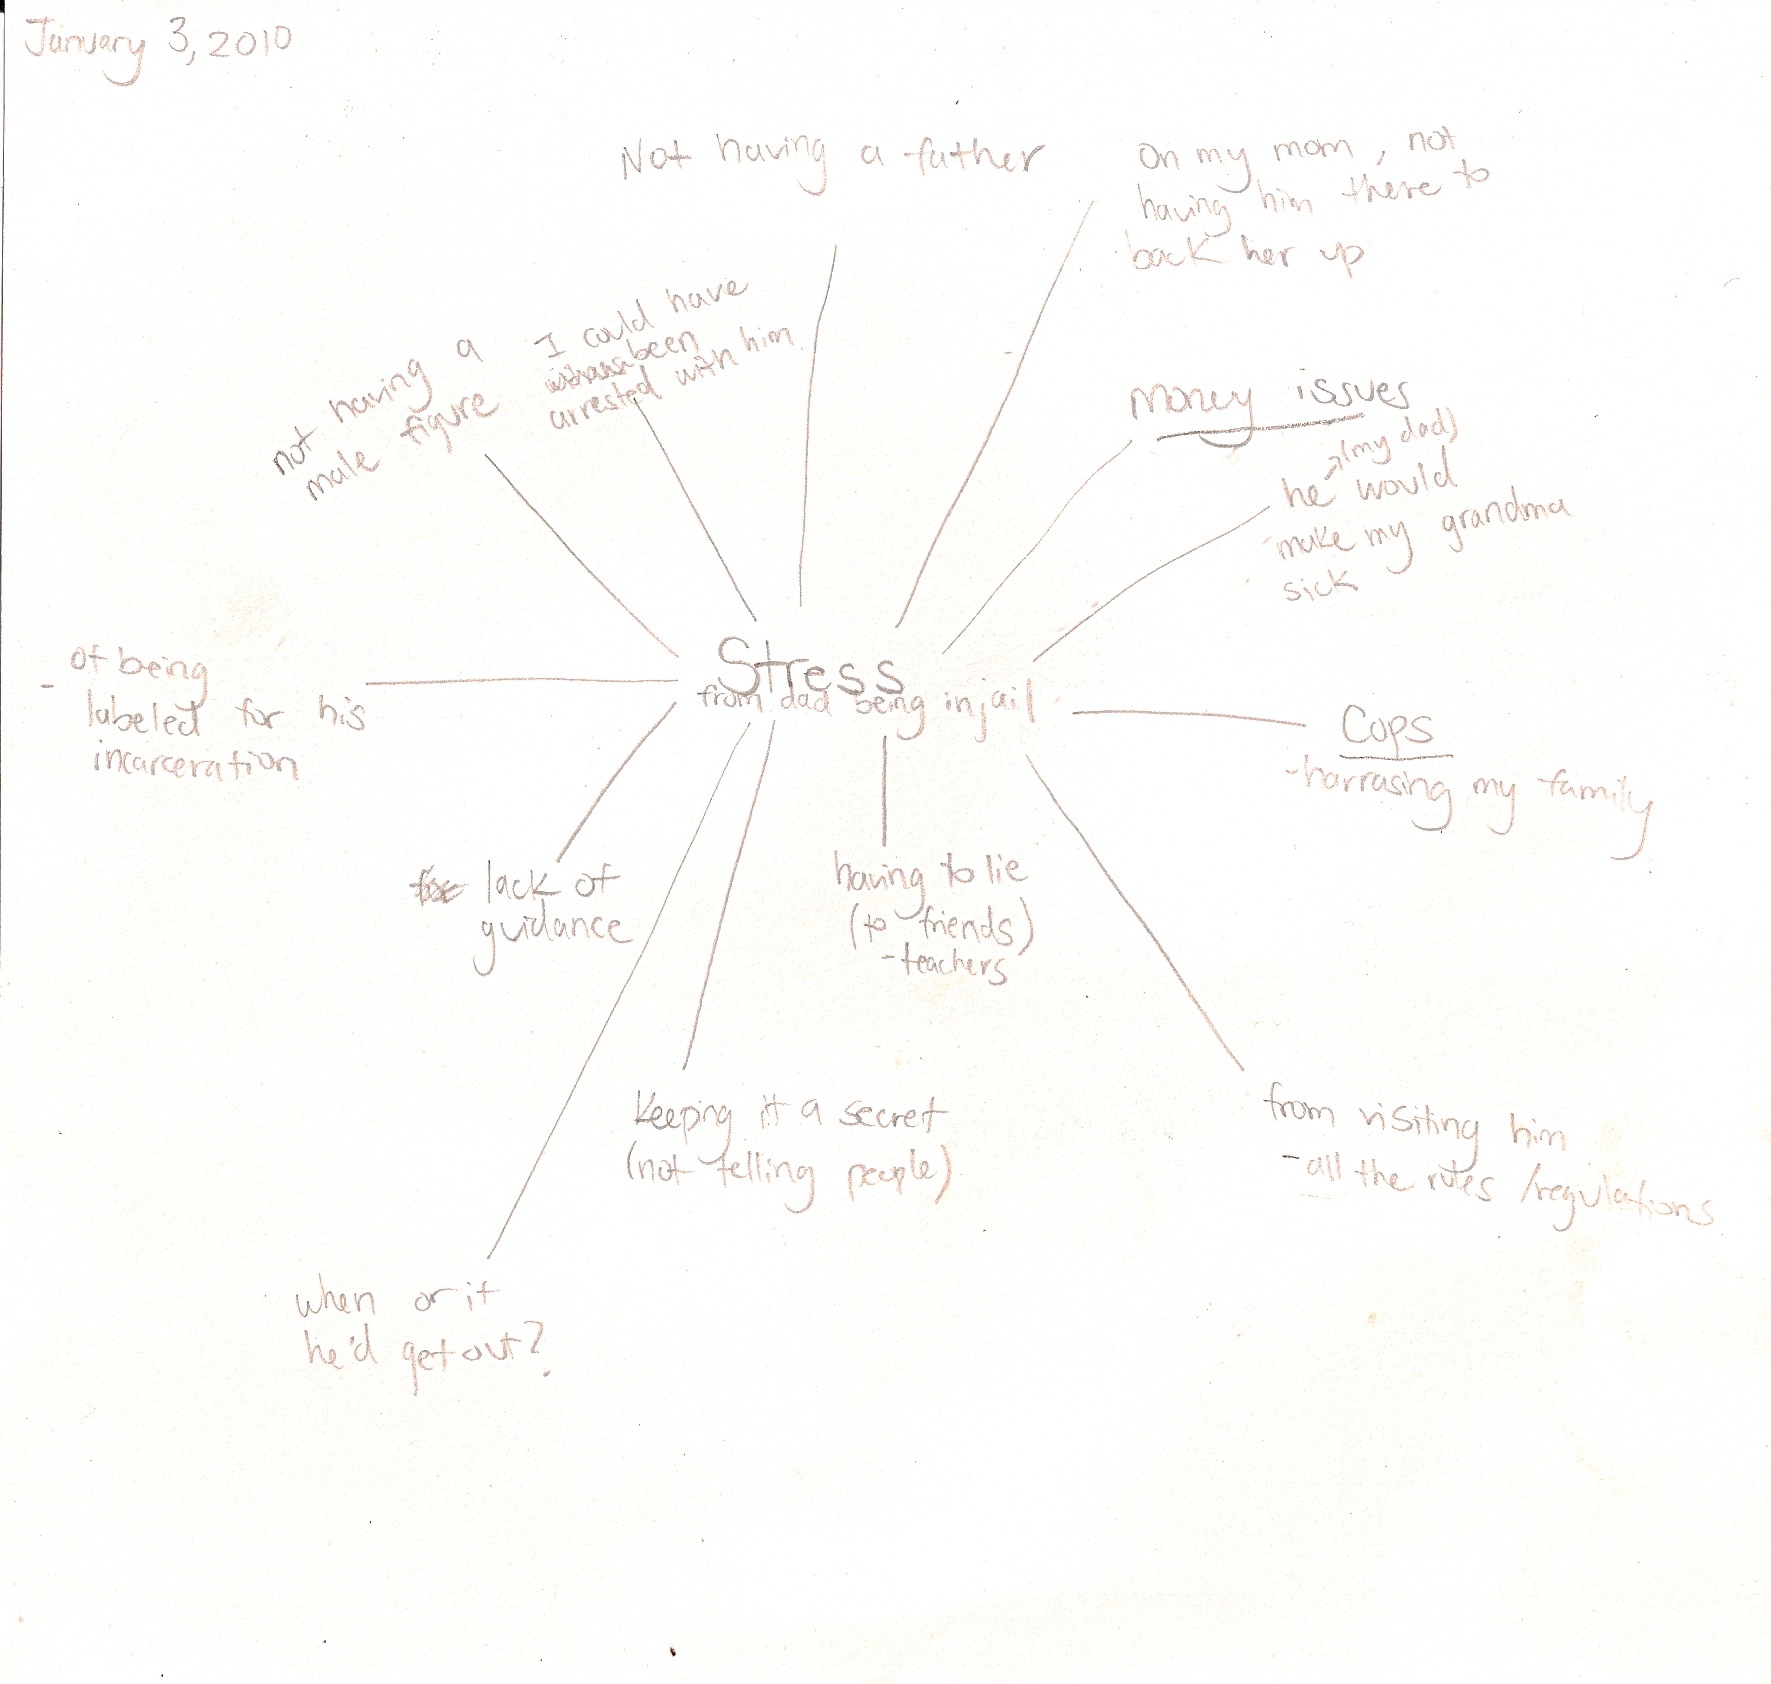 January 3, 2010
Not having a father
On my mom, not
having him there to
back her up
I could have
been
arrested with him.
not having a
male figure
Money issues
(my dad)
he would
make my grandma
sick
Stress
from dad being in jail
- of being
labeled for his
incarceration
Cops
-harrasing my family
lack of
guidance
having to lie
(to friends)
-teachers
Keeping it a secret
(not telling people)
from visiting him
-all the rules /regulations
when or if
he'd get out?